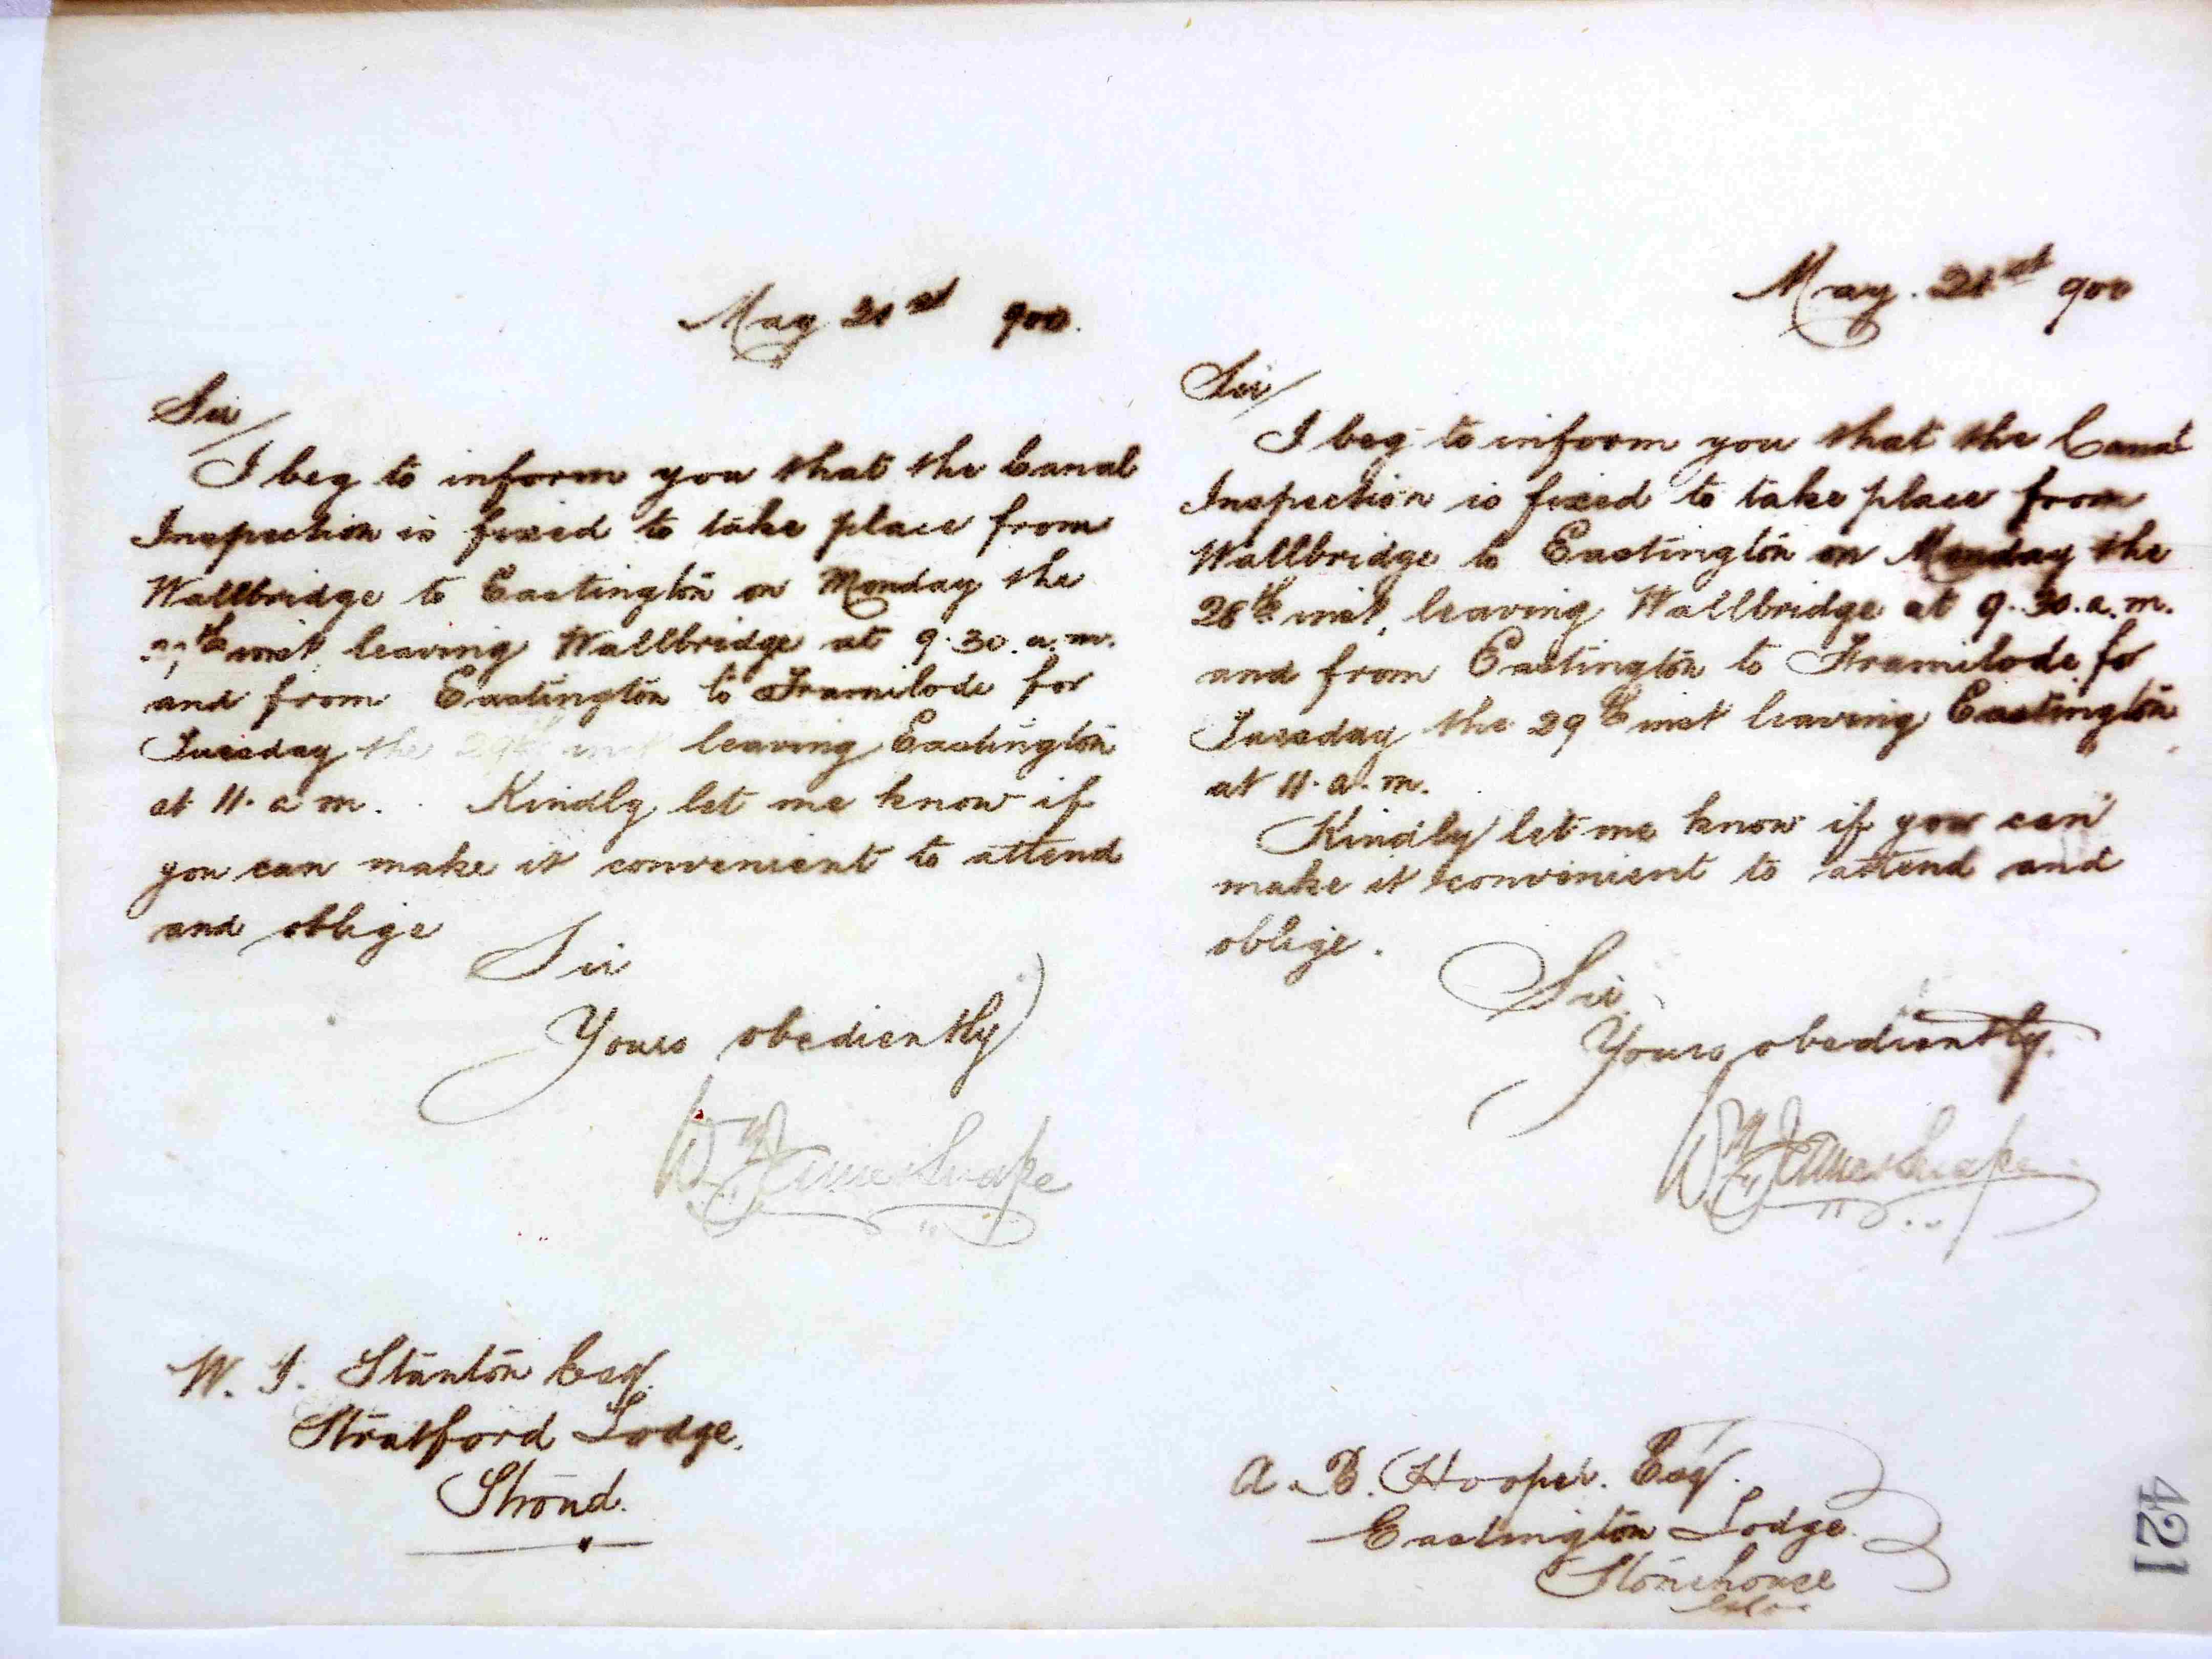 May 21st 900.
Sir/
I beg to inform you that the Canal
Inspection is fixed to take place from
Wallbridge to Eastington on Monday the
inst leaving Wallbridge at 9.30.a.m.
and from Eastington to Framilode for
Tuesday the 29th inst leaving Eastington
at 11. a m. Kindly let me know if
you can make it convenient to attend
and oblige
Sir
Yours obediently
Wm James Snape
W. J. Stanton Esq.
Stratford Lodge.
Stroud.
May. 21st 900
Sir/
I beg to inform you that the Canal
Inspection is fixed to take place from
Wallbridge to Eastington on Monday the
28th inst, leaving Wallbridge at 9.30.a.m.
and from Eastington to Framilode for
Tuesday the 29th inst leaving Eastington
at 11.a.m.
Kindly let me know if you can
make it convenient to attend and
oblige.
Sir
Yours obediently.
Wm James Snape
A. B. Hooper. Esq.
Eastington Lodge.
Stonehouse
Glos
421